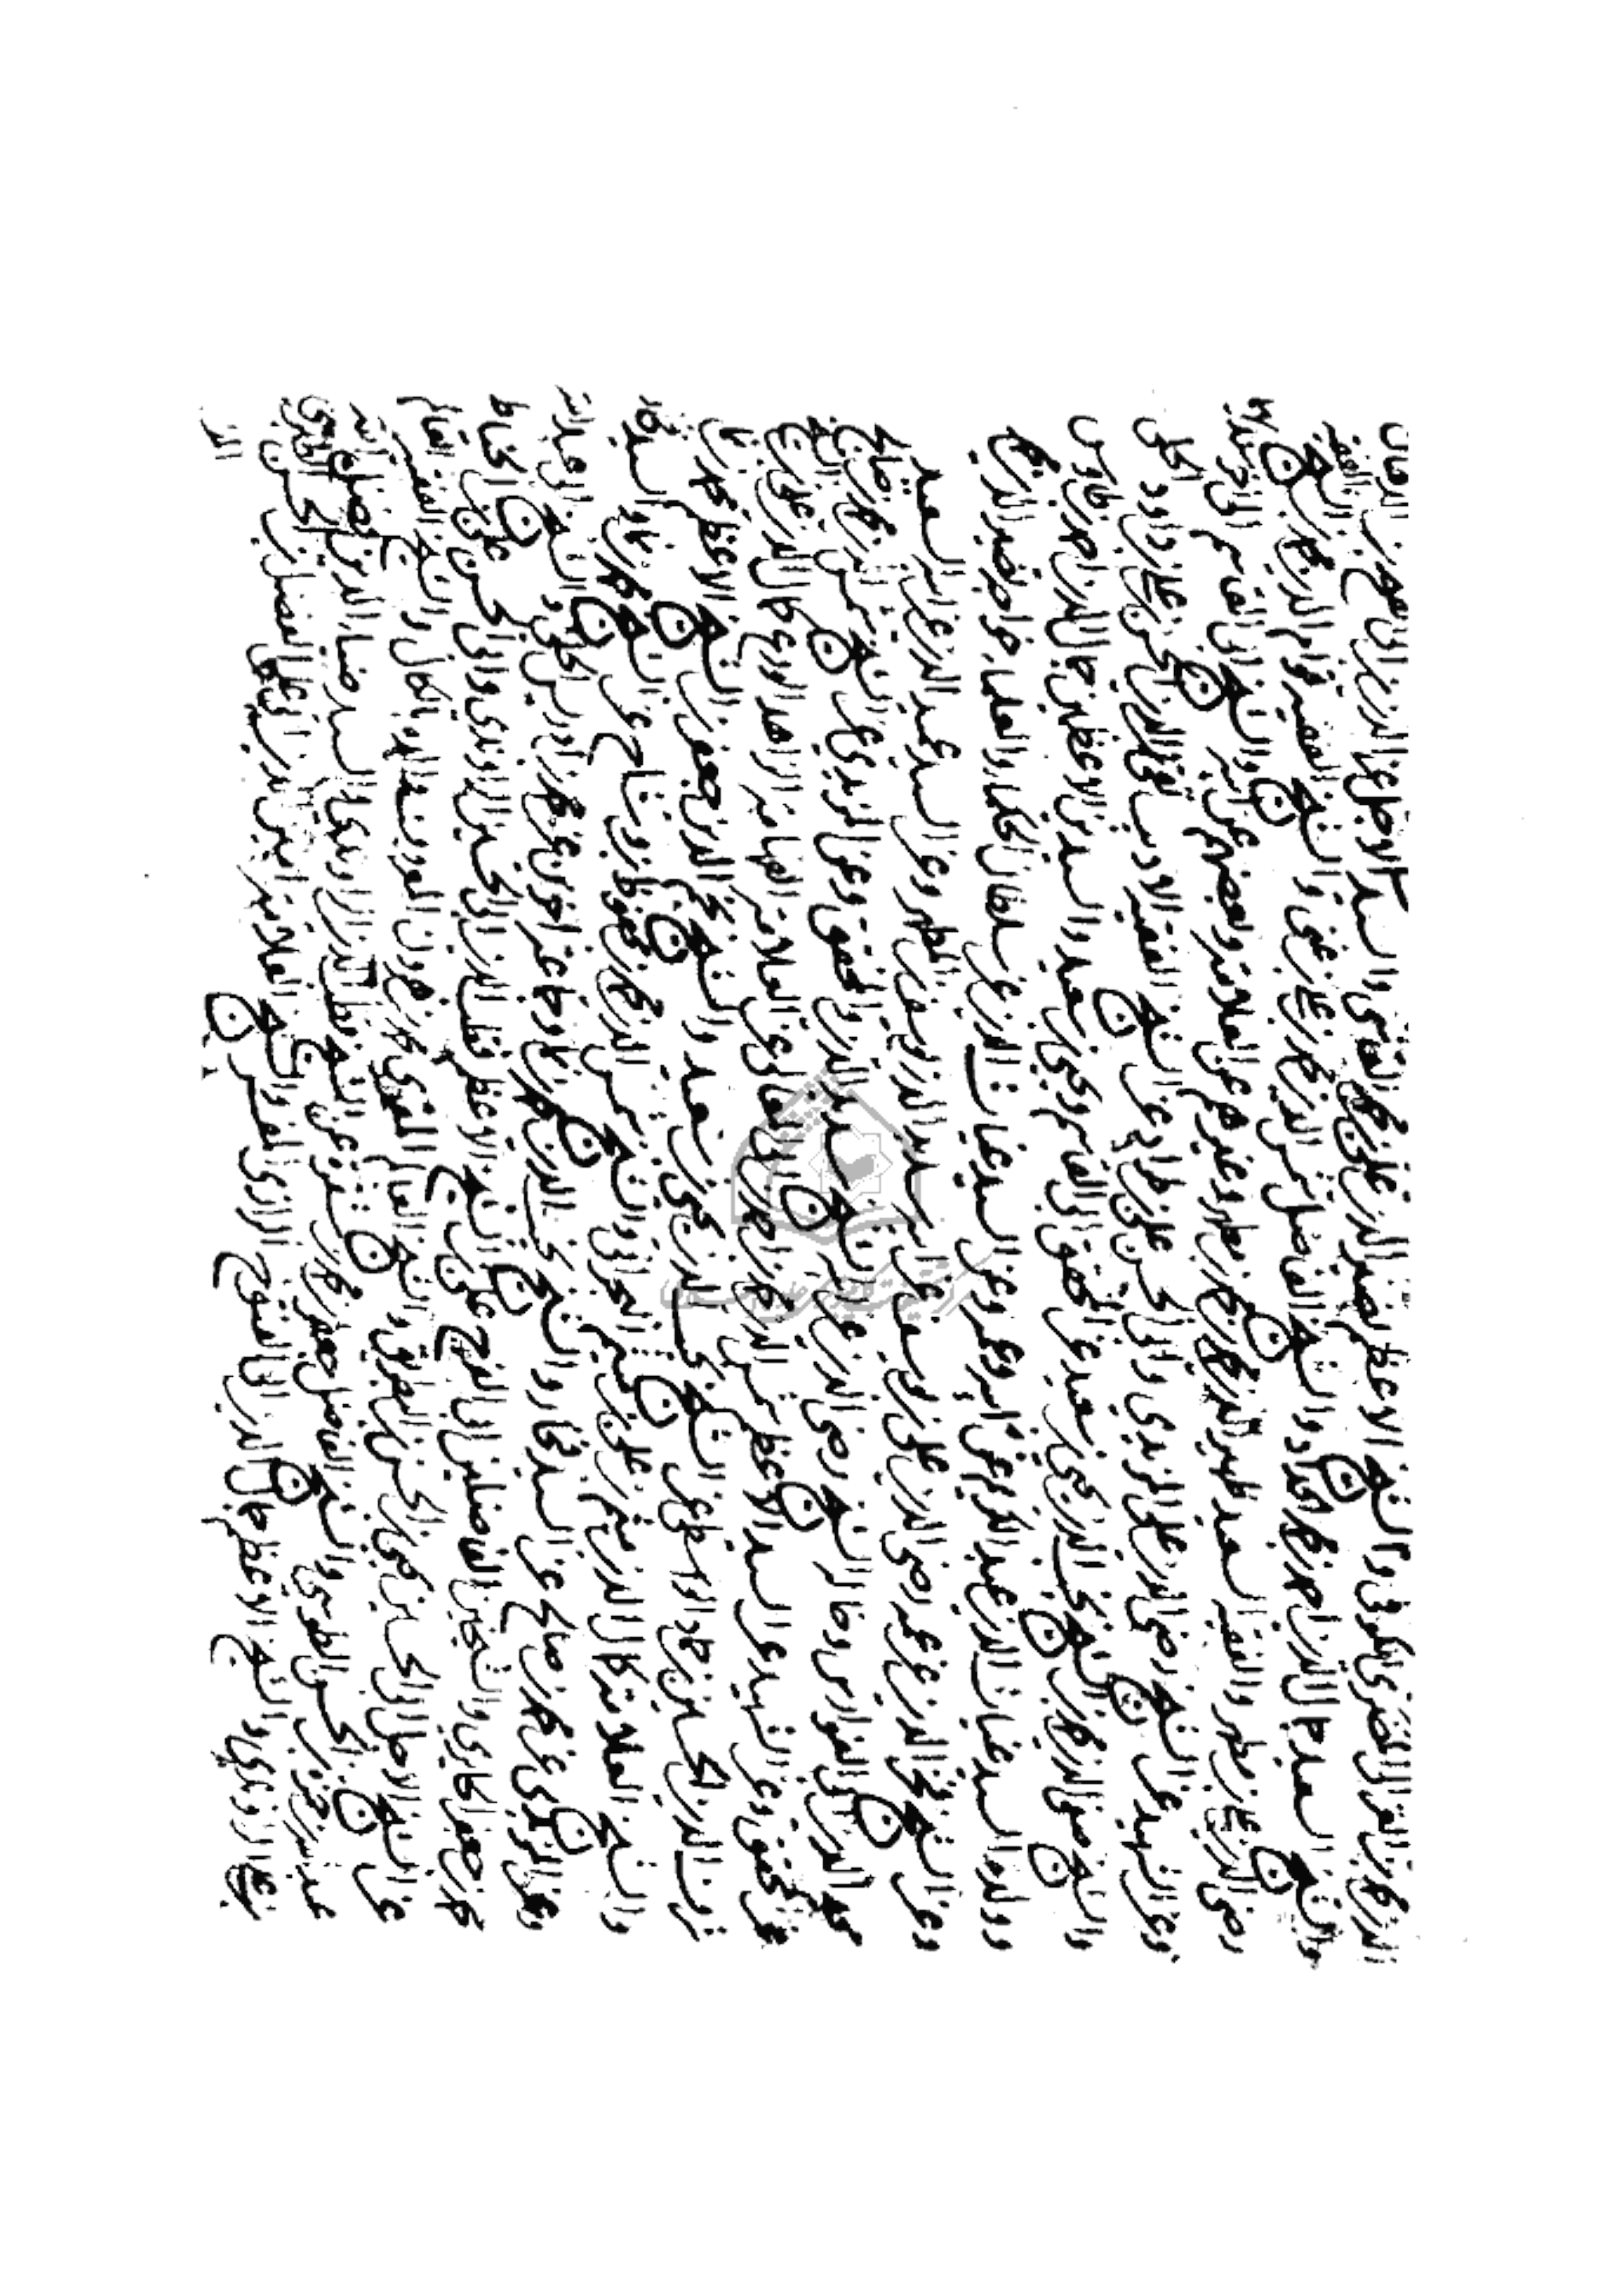 الدين محمد بن العز الى المضرى الكوفى والشيخ الاعظم نصير الدين على بن محمد القاشى والسيد الاجل عز الدين بن ابى الفخر بن الدهان
والشيخ السعيد جمال الدين احمد بن محمد الحداد والشيخ الفاضل شمس الدين محمد بن على بن غنى والشيخ الفقيه قوام الدين محمد بن الشيخ الفقيه
رضى الدين على بن مطهر والفقيه السعيد ظهير الدين محمد بن محمد بن مطهر وغيرهم عن العلامة وبعضهم عن ابيه والشيخ ابى القاسم الى اخر
وعن الشهيد عن الشيخ رضى الدين على المزيدى وابى الحسن على بن طراد عن الشيخ الفقيه الاديب تقى الدين الحسن بن على بن داود الحلى
والشيخ صفى الدين محمد بن الشيخ نجيب الدين يحيى بن سعيد عن المحقق ابى القاسم ويحيى بن سعيد والسيدين الاعظمين جمال الدين احمد بن طاوس
وولده السيد غياث الدين عبد الكريم عن ابيه وعمه وعن السيد غياث الدين عن سلطان الحكماء والعلماء خواجه نصير الدين محمد
وعن الشيخ فخر الدين عن عمه رضى الدين على بن يوسف عن ابيه سديد الدين يوسف بن المطهر وعن السيد عميد الدين عن ابيه السعيد
مجد الدين ابى الفوارس وخاله الشيخ رضى الدين عن ابيه الشيخ سديد الدين والمحقق وعن المزيدى عن الشيخ شمس الدين محمد بن صالح
عن المحقق وعن الشهيد عن السيد الاعظم شمس الدين محمد بن احمد بن ابى المعالى عن العلامة الفهامة الزاهد الورع كمال الدين على بن الشيخ
شرف الدين الحسين بن حماد الواسطى عن الشيخ نجيب الدين يحيى بن سعيد والشيخ نجم الدين جعفر بن الشيخ الاعظم محمد بن نما
والشيخ العلامة كمال الدين ميثم بن على بن ميثم البحرانى والشيخ شمس الدين محمد بن محفوظ بن وشاح عن الشيخ محمد بن نما والسيد فخار
وعن المزيدى عن محمد بن صالح عن السيد فخار والشيخ نجيب الدين محمد بن نما وجماعة اخرين عن محمد بن ادريس الحلى والشيخ ابى عبد الله
محمد بن جعفر الحايرى والشيخين الفاضلين ابى الفرج على بن الشيخ الاعظم قطب الدين ابى الحسين الراوندى وابى الحسن على بن الشيخ الخياط
عن الشيخ الاجل ابى الحسين يحيى بن الحسن بن البطريق والشيخ العالم المقرى محمد بن هرون المعروف والده بالكال والشيخ الفقيه العالم
عبد الله بن حمزة بن الحسن الطوسى والشيخ الفاضل جعفر بن محمد بن شعرة عن الشيخ قطب الدين الراوندى والسيد ضياء الدين فضل الله
بن على الراوندى والشيخ الاعظم جمال الدين ابى الفتوح الرازى المفسر والشيخ العلامة امين الدين ابى على الفضل بن الحسن الطبرسى